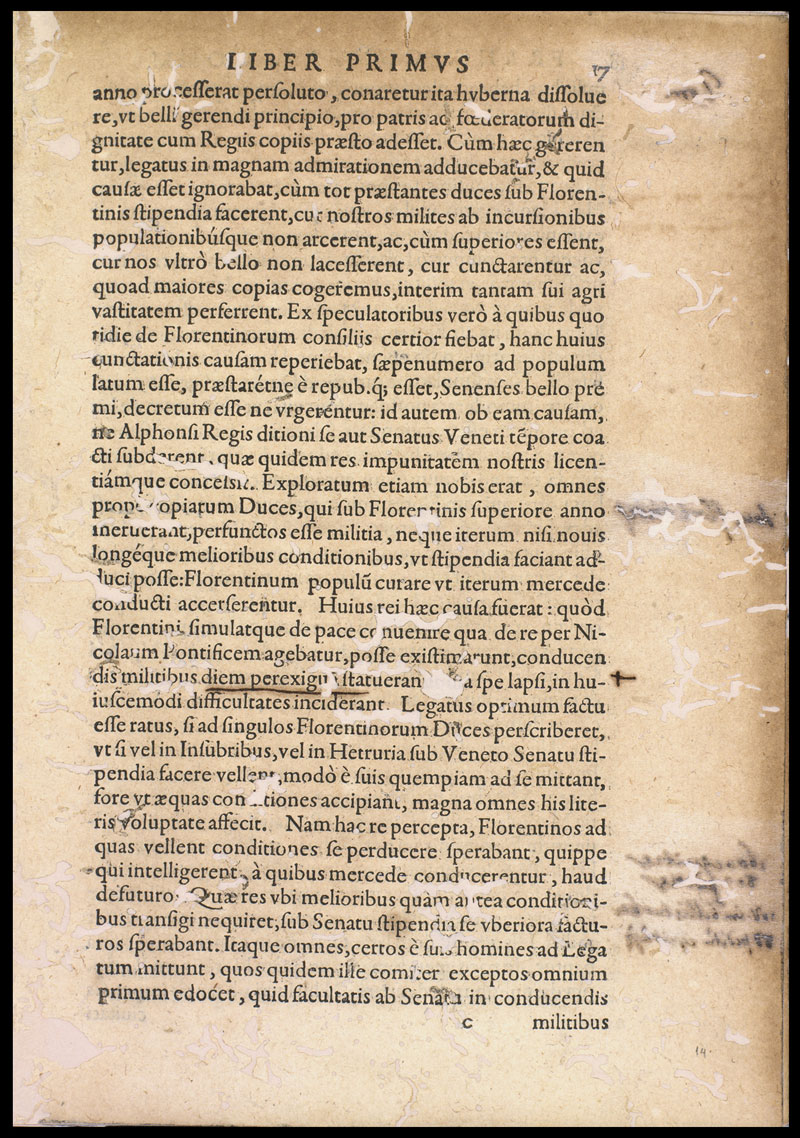 LIBER PRIMVS 17
anno processerat persoluto, conaretur ita hyberna dissolue
re, vt belli gerendi principio, pro patris ac fœderatorum di-
gnitate cum Regiis copiis præsto adesset. Cùm hæc gereren
tur, legatus in magnam admirationem adducebatur, & quid
causæ esset ignorabat, cùm tot præstantes duces sub Floren-
tinis stipendia facerent, cur nostros milites ab incursionibus
populationibúsque non arcerent, ac, cùm superiores essent,
cur nos vltrò bello non lacesserent, cur cunctarentur ac,
quoad maiores copias cogeremus, interim tantam sui agri
vastitatem perferrent. Ex speculatoribus verò à quibus quo
tidie de Florentinorum consiliis certior fiebat, hanc huius
cunctationis causam reperiebat, sæpenumero ad populum
latum esse, præstarétne è repub. q́; esset, Senenses bello pre
mi, decretum esse ne vrgerentur: id autem ob eam causam,
ne Alphonsi Regis ditioni se aut Senatus Veneti tēpore coa
cti subderent, quæ quidem res impunitatem nostris licen-
tiámque concessit. Exploratum etiam nobis erat, omnes
prope copiarum Duces, qui sub Florentinis superiore anno
meruerant, perfunctos esse militia, neque iterum nisi nouis
longéque melioribus conditionibus, vt stipendia faciant ad-
duci posse: Florentinum populū curare vt iterum mercede
conducti accerserentur. Huius rei hæc causa fuerat: quòd
Florentini simulatque de pace conuenire qua de re per Ni-
colaum Pontificem agebatur, posse existimarunt, conducen
dis militibus diem perexiguā statueran a spe lapsi, in hu-
iuscemodi difficultates inciderant. Legatus optimum factu
esse ratus, si ad singulos Florentinorum Duces perscriberet,
vt si vel in Insubribus, vel in Hetruria sub Veneto Senatu sti-
pendia facere vellent, modò è suis quempiam ad se mittant,
fore vt æquas conditiones accipiant, magna omnes his lite-
ris voluptate affecit. Nam hac re percepta, Florentinos ad
quas vellent conditiones se perducere sperabant, quippe
qui intelligerent, à quibus mercede conducerentur, haud
defuturo. Quæ res vbi melioribus quàm antea conditioni-
bus transigi nequiret, sub Senatu stipendia se vberiora factu-
ros sperabant. Itaque omnes, certos è suis homines ad Lega
tum mittunt, quos quidem ille comiter exceptos omnium
primum edocet, quid facultatis ab Senatu in conducendis
c militibus
14.